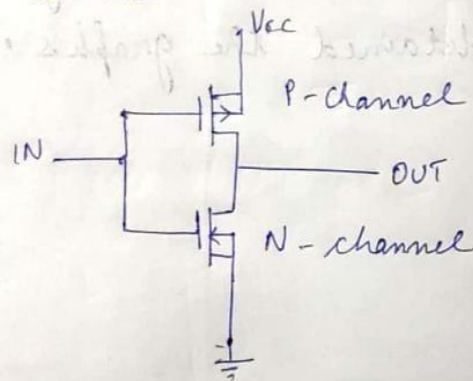 Vcc
P-channel
IN
OUT
N-channel